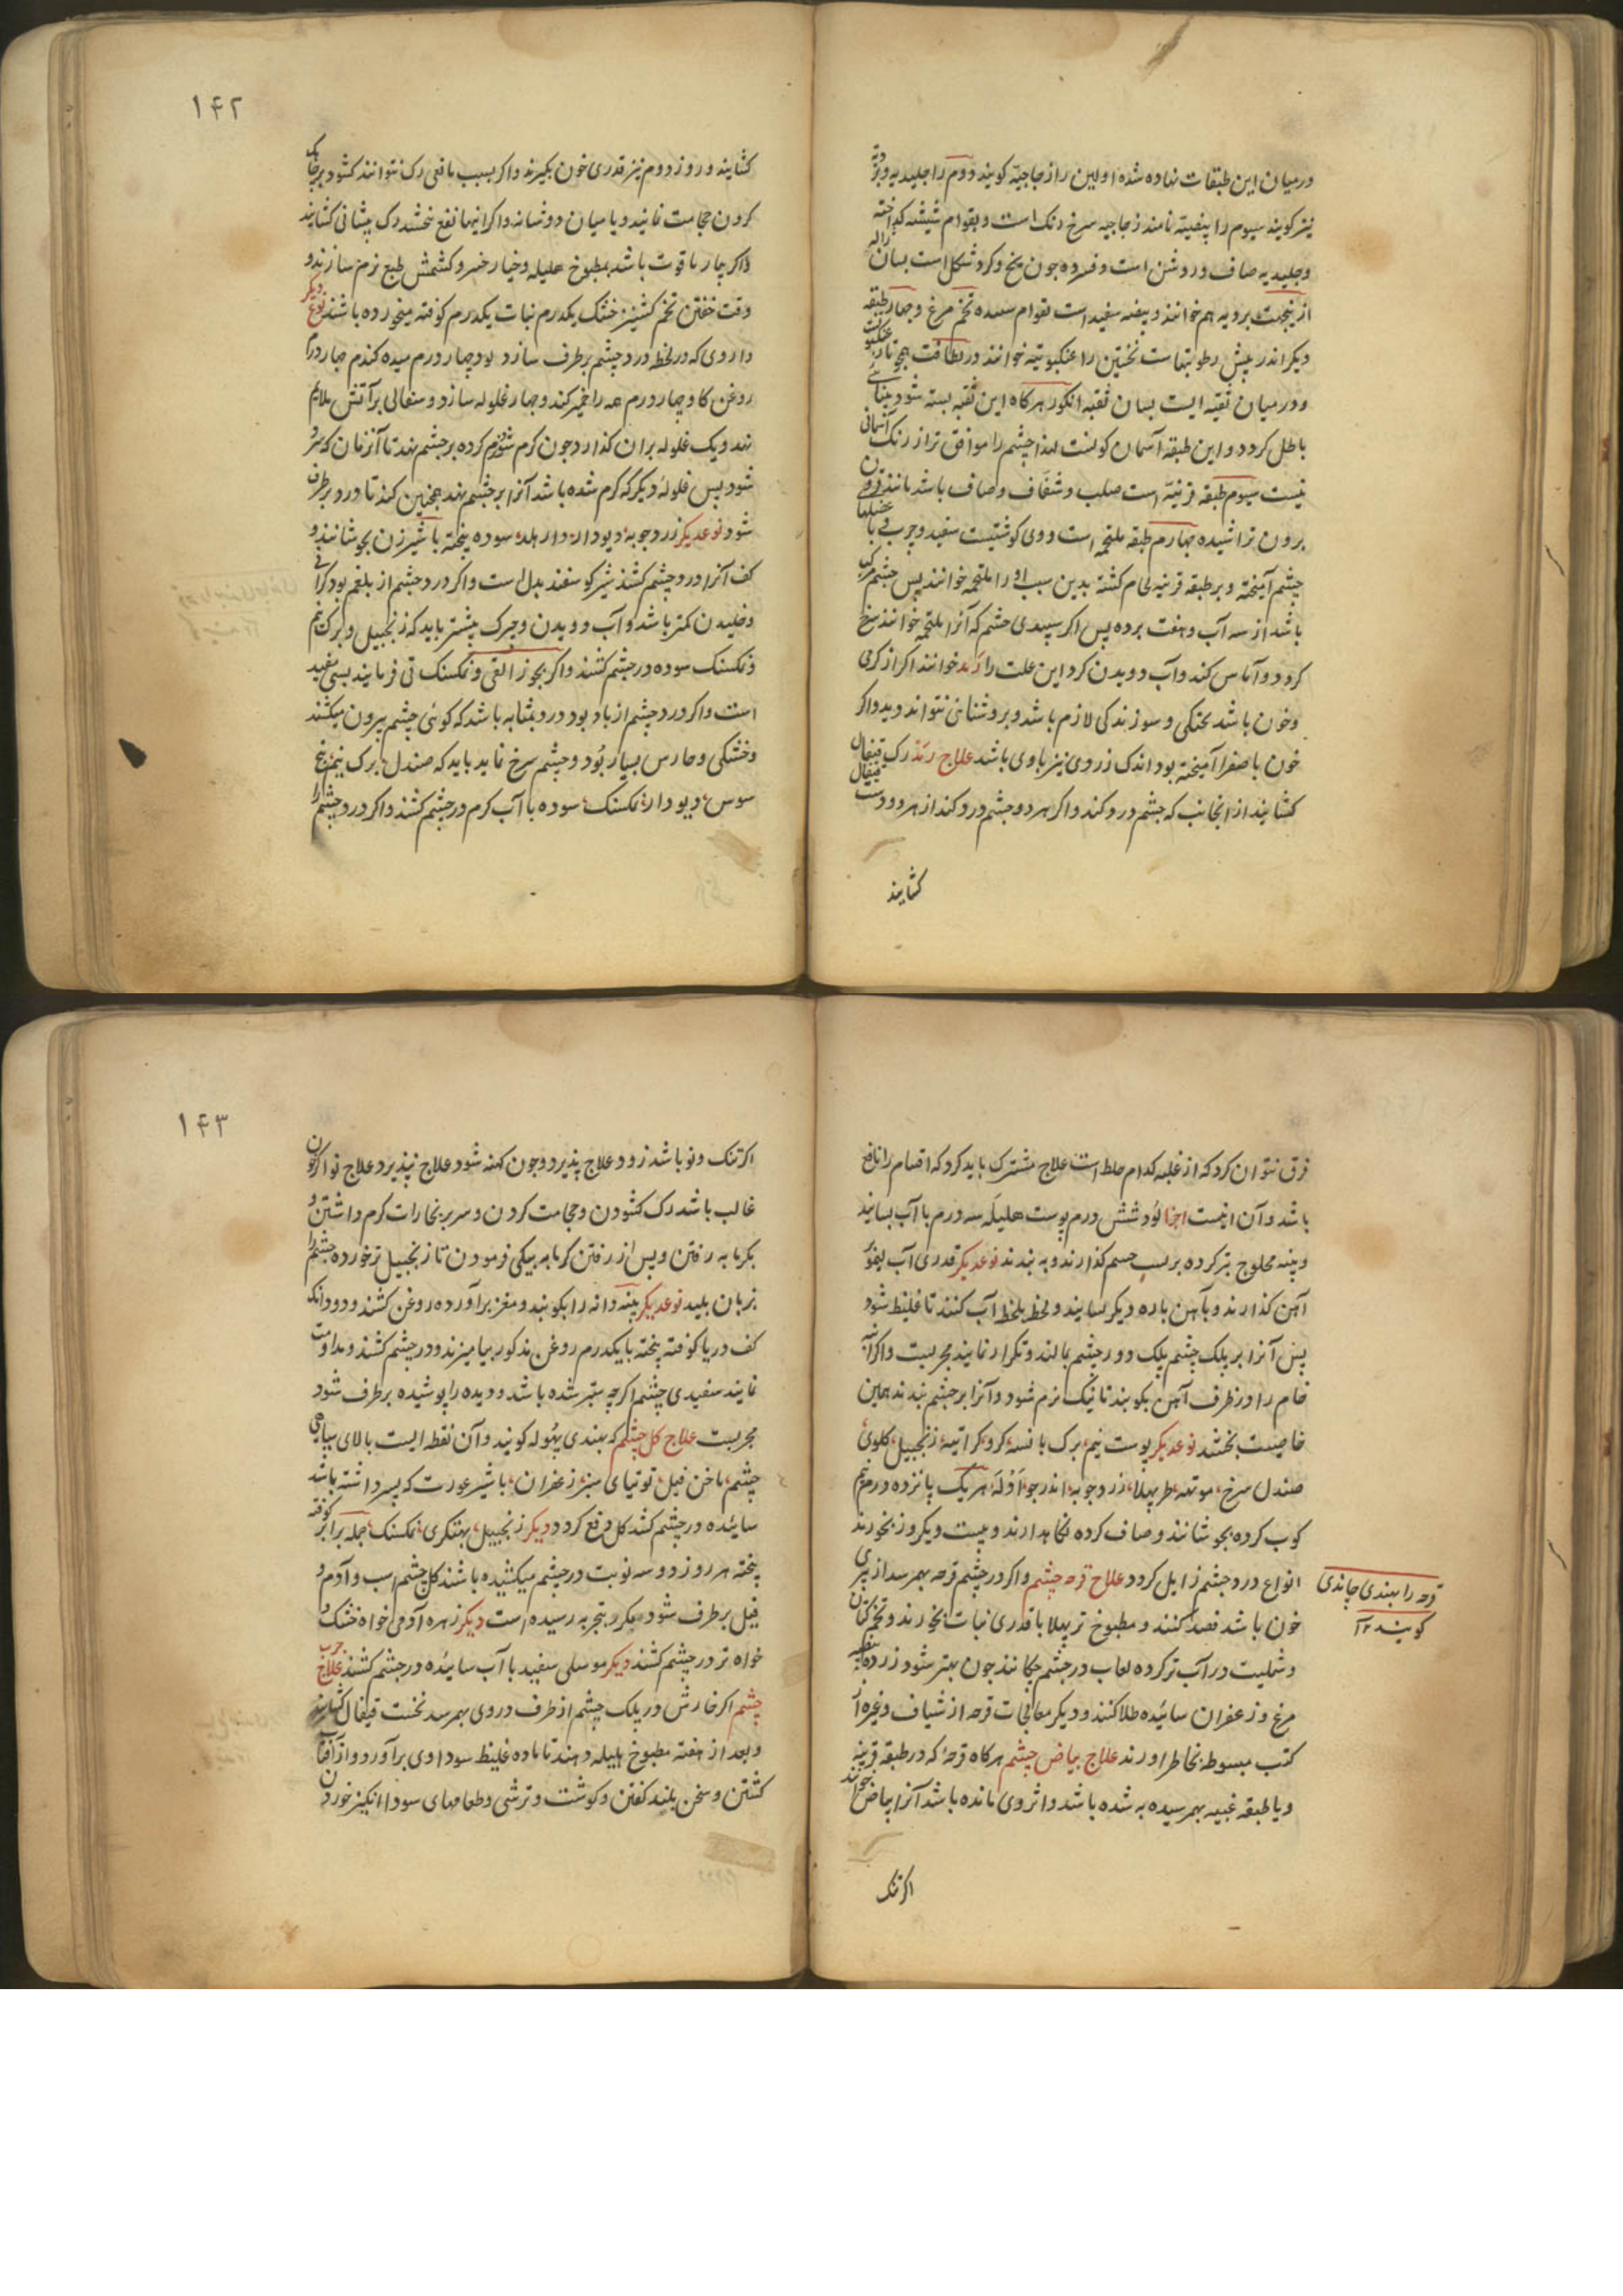 درمیان این طبقات نهاده شده اولین را زجاجیّه کویند دوم را جلیدیه و بردیّه
نیز کویند سیوم را بیضیّه نامند زجاجیه سرخ رنک است و بقوام شیشه کداخته
و جلیدیه صاف و روشن است و فسرده چون یخ و کرد شکل است بسان ژاله
ازینجهت بردیه هم خوانند و بیضه سفید است بقوام سفیده تخم مرغ و چهار طبقه
دیکر اندر پیش رطوبتهاست نخستین را عنکبوتیّه خوانند در لطافت همچو تار عنکبوت
و در میان ثقبه ایست بسان ثقبه انکور هرکاه این ثقبه بسته شود بینائی
باطل کردد و این طبقه آسمان کونست لهذا چشم را موافق تر از رنک آسمانی
نیست سیوم طبقه قرنیّه است صلب و شفاف و صاف باشد مانند قرن
برون تراشیده چهارم طبقه ملتحمه است و وی کوشتیست سفید و چرب با عضلهاء
چشم آمیخته و بر طبقه قرنیه لحام کشته بدین سبب او را ملتحمه خوانند پس چشم مرکب
باشد از سه آب و هفت پرده پس اکر سپیدی چشم که آنرا ملتحمه خوانند سرخ
کردد و آماس کند و آب دویدن کرد این علت را رمد خوانند اکر از کرمی
و خون باشد خشکی و سوزندکی لازم باشد و بروشنائی نتواند دید و اکر
خون با صفرا آمیخته بود اندک زردی نیز باوی باشد علاج رمد رک قیفال
کشایند از انجانب که چشم درد کند و اکر هر دو چشم درد کند از هر دو دست قیفال
کشایند
۱۴۲
کشایند و روز دوم نیز قدری خون بکیرند و اکر بسبب مانعی رک نتوانند کشود بر چاک
کردن حجامت نمایند و یا میان دو شانه و اکر اینها نفع نبخشد رک پیشانی کشایند
و اکر بیمار با قوت باشد بمطبوخ هلیله و خیارخنبر و کشمش طبع نرم سازند و
وقت خفتن تخم کشنیز خشک یکدرم نبات یکدرم کوفته میخورده باشند نوع دیکر
داروی که در لحظه درد چشم برطرف سازد لود چهار درم میده کندم چهار درم
روغن کاو چهار درم همه را خمیر کند و چهار غلوله سازد و سفالی بر آتش ملایم
نهد و یک غلوله بران کذارد چون کرم شود نرم کرده بر چشم نهد تا آنزمان که سرد
شود پس غلولهٔ دیکر که کرم شده باشد آنرا بر چشم نهد همچنین کند تا درد برطرف
شود نوعدیکر زرد چوبه دیودار دارهلد سوده پخته با شیر زن بجوشانند و
کف آنرا در چشم کشند شیر کوسفند بدل است و اکر درد چشم از بلغم بود کرانی
و خلیدن کمتر باشد و آب دویدن و چرک بیشتر باید که زنجبیل و برک نیم
و نمکسنک سوده در چشم کشند و اکر بجوز القی و نمکسنک قی فرمایند بسی مفید
است و اکر درد چشم از باد بود درد بمثابه باشد که کوئی چشم بیرون میکشند
و خشکی و خارس بسیار بود و چشم سرخ نماید باید که صندل برک نیم بیخ
سوس دیودار نمکسنک سوده با آب کرم در چشم کشند و اکر درد چشم را
فرق نتوان کرد که از غلبه کدام خلط است علاج مشترک باید کرد که اقسام را نافع
باشد و آن اینست اجزا لود شش درم پوست هلیله سه درم با آب بسایند
و پنبه محلوج تر کرده بر پس چسم کذارند و به بندند نوعدیکر قدری آب لیمو بر
آهن کذارند و بآهن پاره دیکر بسایند و لحظه بلحظه آب کنند تا غلیظ شود
پس آنرا بر پلک چشم پلک و در چشم بمالند و تکرار نمایند مجربست و اکر انبه
خام را در ظرف آهن بکوبند تا نیک نرم شود و آنرا بر چشم بندند همین
خاصیت بخشد نوعدیکر پوست نیم برک بانسه کرو کراتیه زنجبیل کلوی
صندل سرخ موتهه طرپهلا زرد چوبه اندرجو آوله هریک پانزده درم نیم
کوب کرده بجوشانند و صاف کرده نکاهدارند و بیست و یک روز بخورند
انواع درد چشم زایل کردد علاج قرحه چشم و اکر در چشم قرحه بهم رسد از پری
خون باشد فصد کنند و مطبوخ ترپهلا با قدری نبات بخورند و تخم کتان
و شملیت در آب تر کرده لعاب در چشم چکانند چون بهتر شود زرده بیضه
مرغ و زعفران سائیده طلا کنند و دیکر معالجات قرحه از شیاف و غیره از
کتب مبسوطه بخاطر آورند علاج بیاض چشم هرکاه قرحهٔ که در طبقه قرنیه
و یا طبقه عنبیه بهمرسیده به شده باشد و اثر وی مانده باشد آنرا بیاض خوانند
اکر تنک
قرحه را بهندی چاندی
کویند ۱۲
۱۴۳
اکر تنک و نو باشد زود علاج پذیرد و چون کهنه شود علاج نپذیرد علاج نو اکر خون
غالب باشد رک کشودن و حجامت کردن و سر بر بخارات کرم داشتن و
بکرمابه رفتن و پس از رفتن کرمابه بیکی فرمودن تا زنجبیل تر خورده چشم را
بزبان بلیسد نوعدیکر پنبه دانه را بکوبند و مغز برآورده روغن کشند و دو دانک
کف دریا کوفته پخته بایکدرم روغن مذکور بیامیزند و در چشم کشند و مداومت
نمایند سفیدی چشم اکرچه ستبر شده باشد و دیده را پوشیده برطرف شود
مجربست علاج کل چشم که بهندی پهوله کویند و آن نقطه ایست بالای سیاهی
چشم ناخن فیل توتیای سبز زعفران با شیر عورت که پسر داشته باشد
سائیده در چشم کشد کل دفع کردد دیکر زنجبیل پهتکری نمکسنک جمله برابر کوفته
پخته هر روز دو سه نوبت در چشم میکشیده باشند کل چشم اسب و آدم و
فیل برطرف شود مکرر بتجربه رسیده است دیکر زهره آدمی خواه خشک و
خواه تر در چشم کشند دیکر موسلی سفید با آب سائیده در چشم کشند علاج جرب
چشم اکر خارش در پلک چشم از طرف دروی بهم رسد نخست قیفال کشایند
و بعد از هفته مطبوخ هلیله دهند تا ماده غلیظ سوداوی برآورد و از آفتاب
کشتن و سخن بلند کفتن و کوشت و ترشی و طعامهای سودا انکیز خوردن